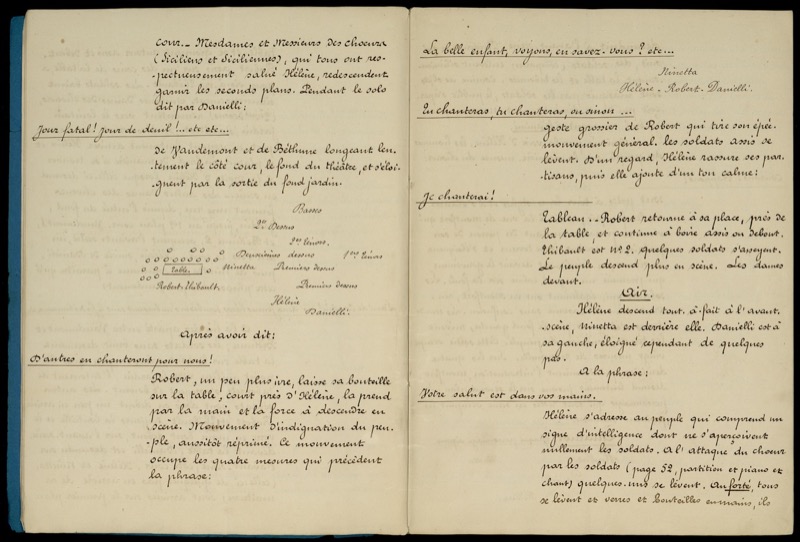 cour._ Mesdames et Messieurs des choeurs
(Siciliens et Siciliennes), qui tous ont res-
-pectueusement salué Hélène, redescendent
garnir les seconds plans. Pendant le solo
dit par Danielli:
Jour fatal! Jour de deuil!... etc etc...
de Vaudemont et de Béthune longeant len-
tement le côté cour, le fond du théâtre, et s'éloi-
gnent par la sortie du fond jardin.
Basses
2ds Dessus
2ds Ténors.
dessus 1ers Ténors
Table. Ninetta Premiers dessus
Robert. Thibault. Premiers dessus
Hélène
Danielli.
Après avoir dit:
D'autres en chanteront pour nous!
Robert, un peu plus ivre, laisse sa bouteille
sur la table, court près d'Hélène, la prend
par la main et la force à descendre en
scène. Mouvement d'indignation du peu-
-ple, aussitôt réprimé. Ce mouvement
occupe les quatre mesures qui précèdent
la phrase:
La belle enfant, voyons, en savez-vous? etc...
Ninetta
Hélène - Robert - Danielli.
Tu chanteras, tu chanteras, ou sinon ...
geste grossier de Robert qui tire son épée.
mouvement général. les soldats assis se
lèvent. D'un regard, Hélène rassure ses par-
tisans, puis elle ajoute d'un ton calme:
Je chanterai!
Tableau._ Robert retourne à sa place, près de
la table, et continue à boire assis ou debout.
Thibault est no 2. quelques soldats s'asseyent.
Le peuple descend plus en scène. Les dames
devant.
Air.
Hélène descend tout-à-fait à l'avant-
-scène, Ninetta est derrière elle. Danielli est à
sa gauche, éloigné cependant de quelques
pas.
A la phrase:
Votre salut est dans vos mains.
Hélène s'adresse au peuple qui comprend un
signe d'intelligence dont ne s'aperçoivent
nullement les soldats. A l'attaque du choeur
par les soldats (page 52, partition et piano et
chant) quelques-uns se lèvent. Au forté, tous
se lèvent et verres et bouteilles en mains, ils